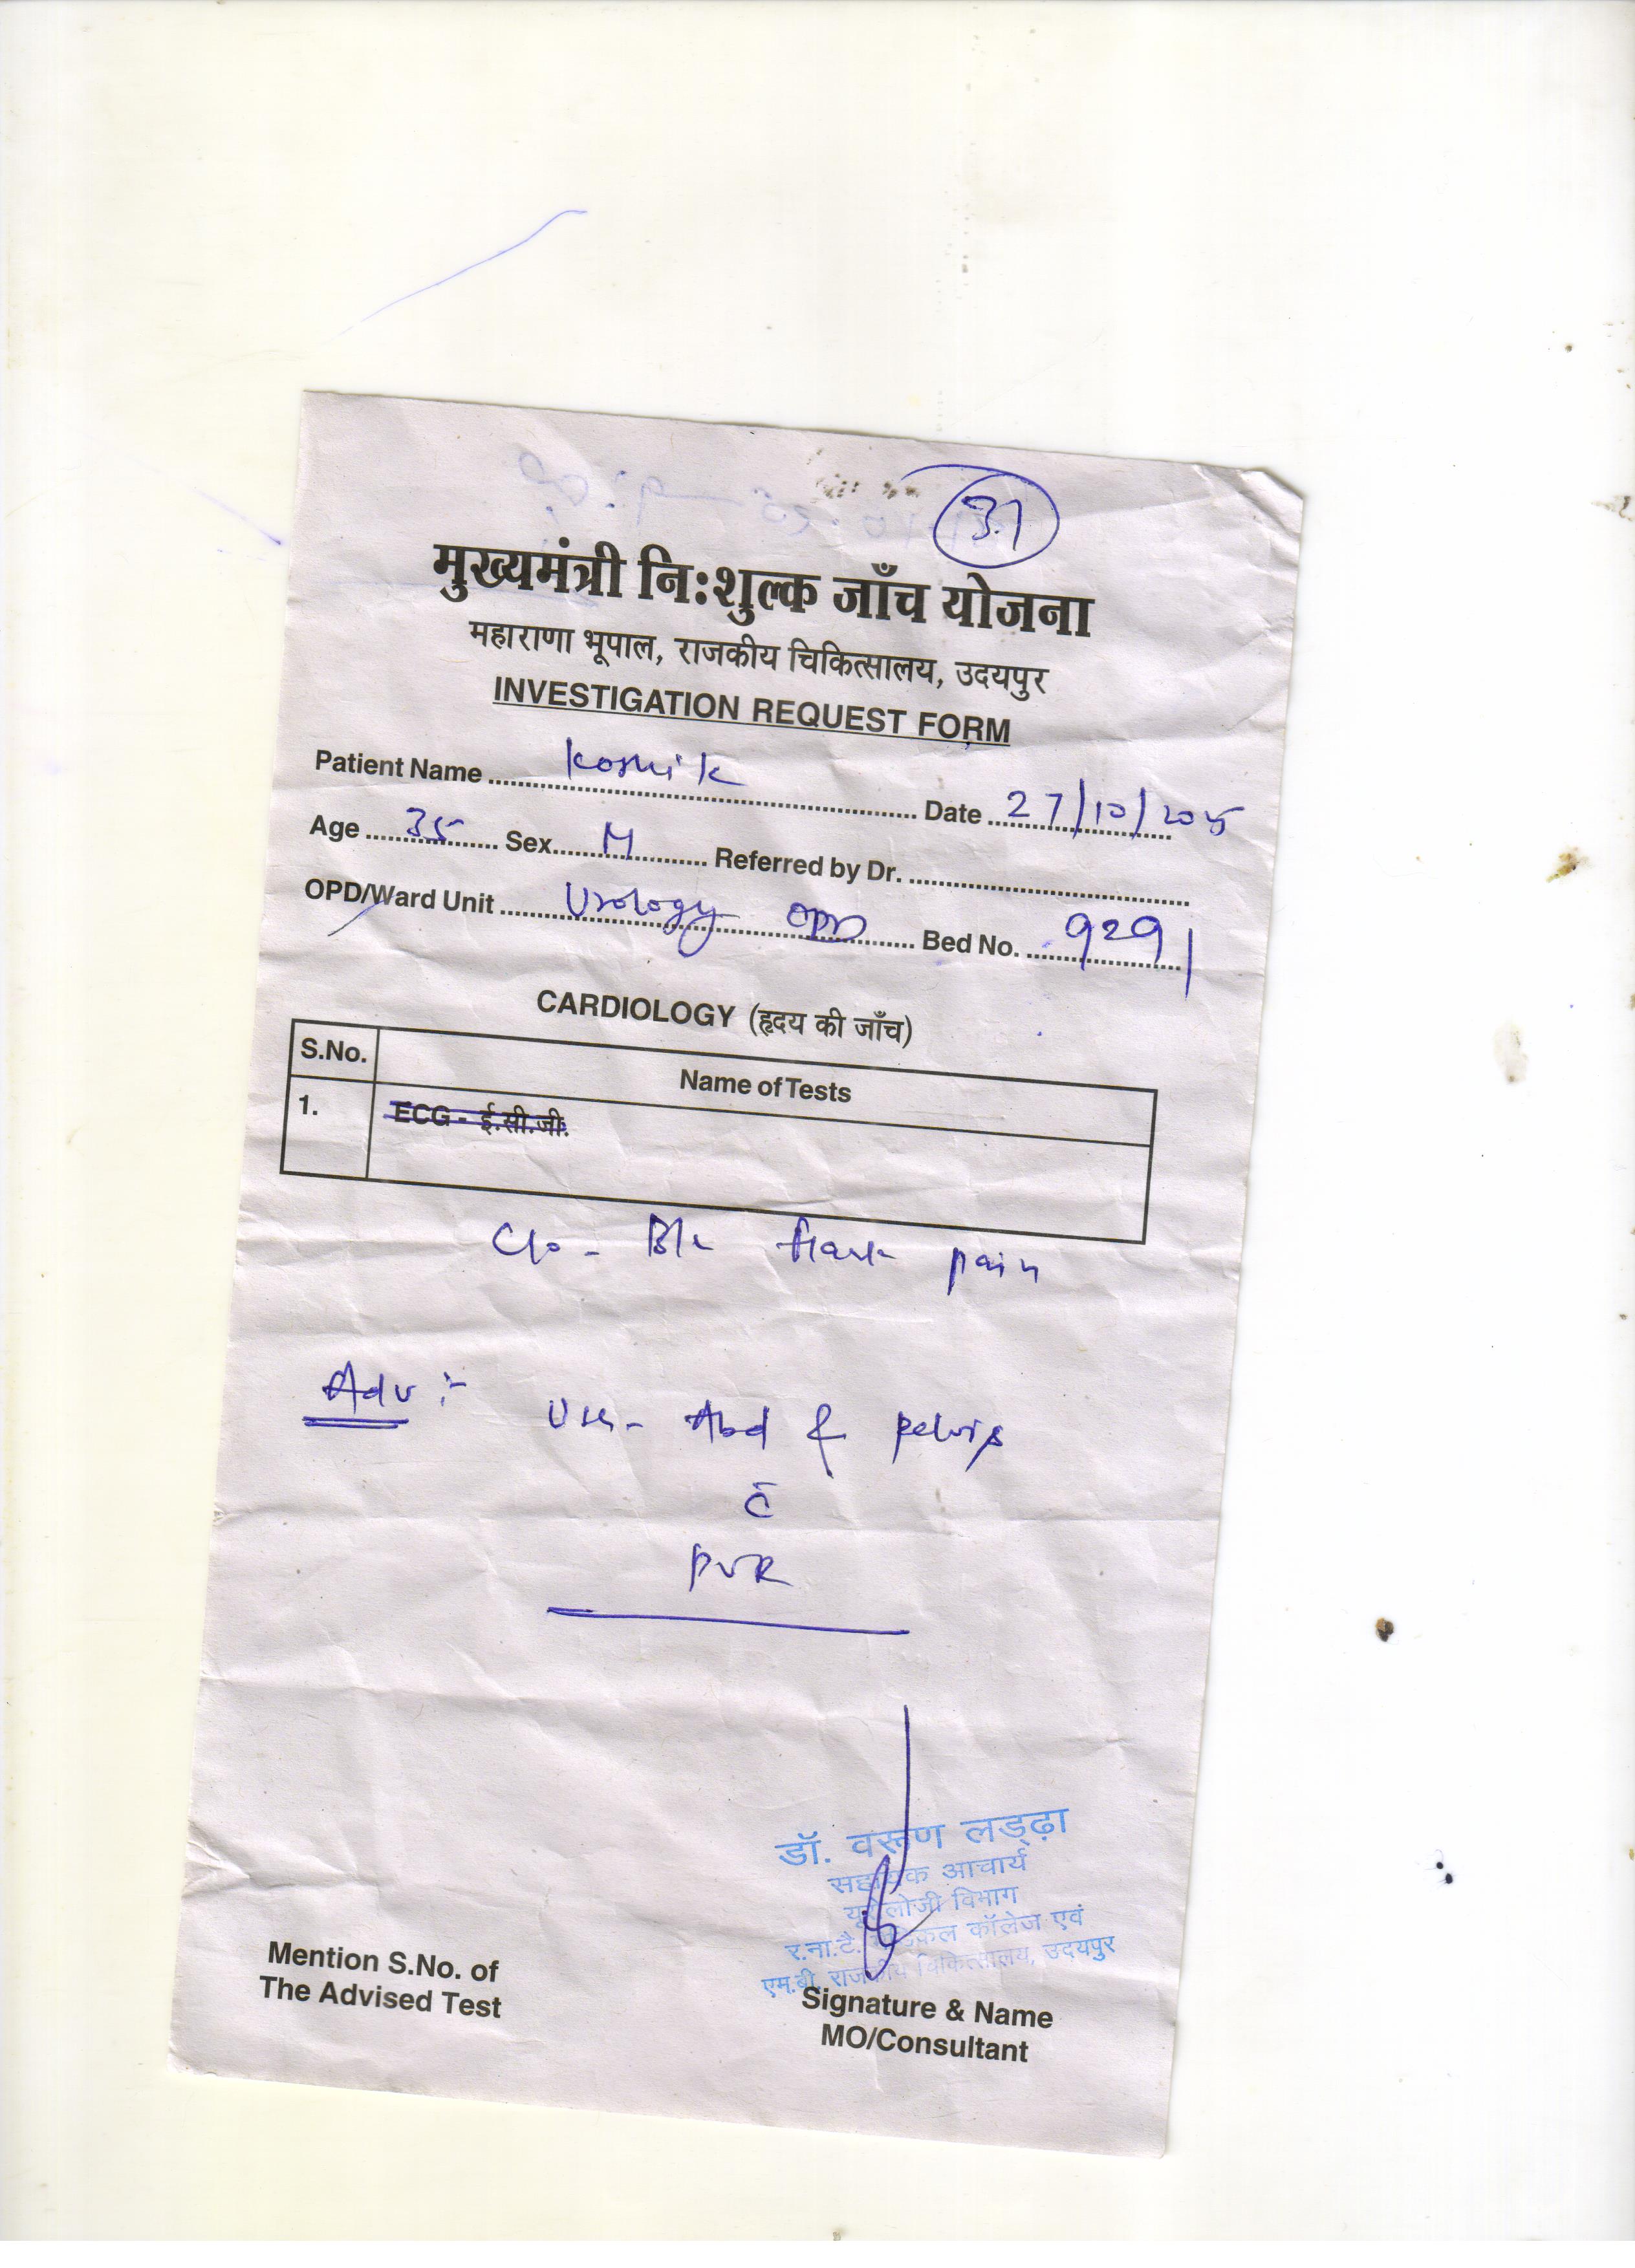 31
मुख्यमंत्री नि:शुल्क जाँच योजना
महाराणा भूपाल, राजकीय चिकित्सालय, उदयपुर
INVESTIGATION REQUEST FORM
Patient Name Koshik Date 27/10/2025
Age 35 Sex M Referred by Dr.
OPD/Ward Unit Urology OPD Bed No. 9291
CARDIOLOGY (हृदय की जाँच)
S.No. Name of Tests
1. ECG - ई.सी.जी.
C/o - B/L flank pain
Adv :-
USG - Abd & pelvis
c̄
PVR
डॉ. वरूण लड्ढ़ा
सहायक आचार्य
यूरोलोजी विभाग
र.ना.टै. मेडिकल कॉलेज एवं
एम.बी. राजकीय चिकित्सालय, उदयपुर
Mention S.No. of
The Advised Test
Signature & Name
MO/Consultant